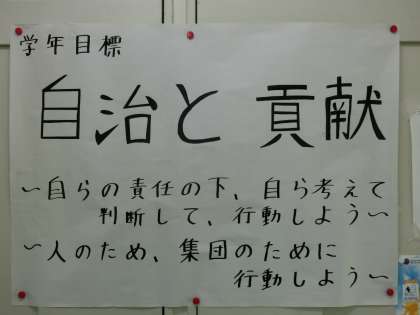 学年目標
自治と貢献
〜自らの責任の下、自ら考えて
判断して、行動しよう〜
〜人のため、集団のために
行動しよう〜